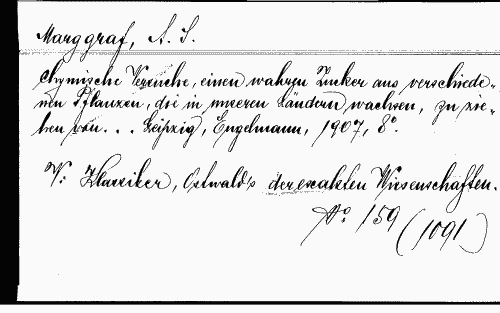 Marggraf, A. S.
Chymische Versuche, einen wahren Zucker aus verschiede-
nen Pflanzen, die in unseren Ländern wachsen, zu zie-
hen von... Leipzig, Engelmann, 1907, 8°.
V: Klassiker, Ostwald's der exakten Wissenschaften.
No. 159 (1091)